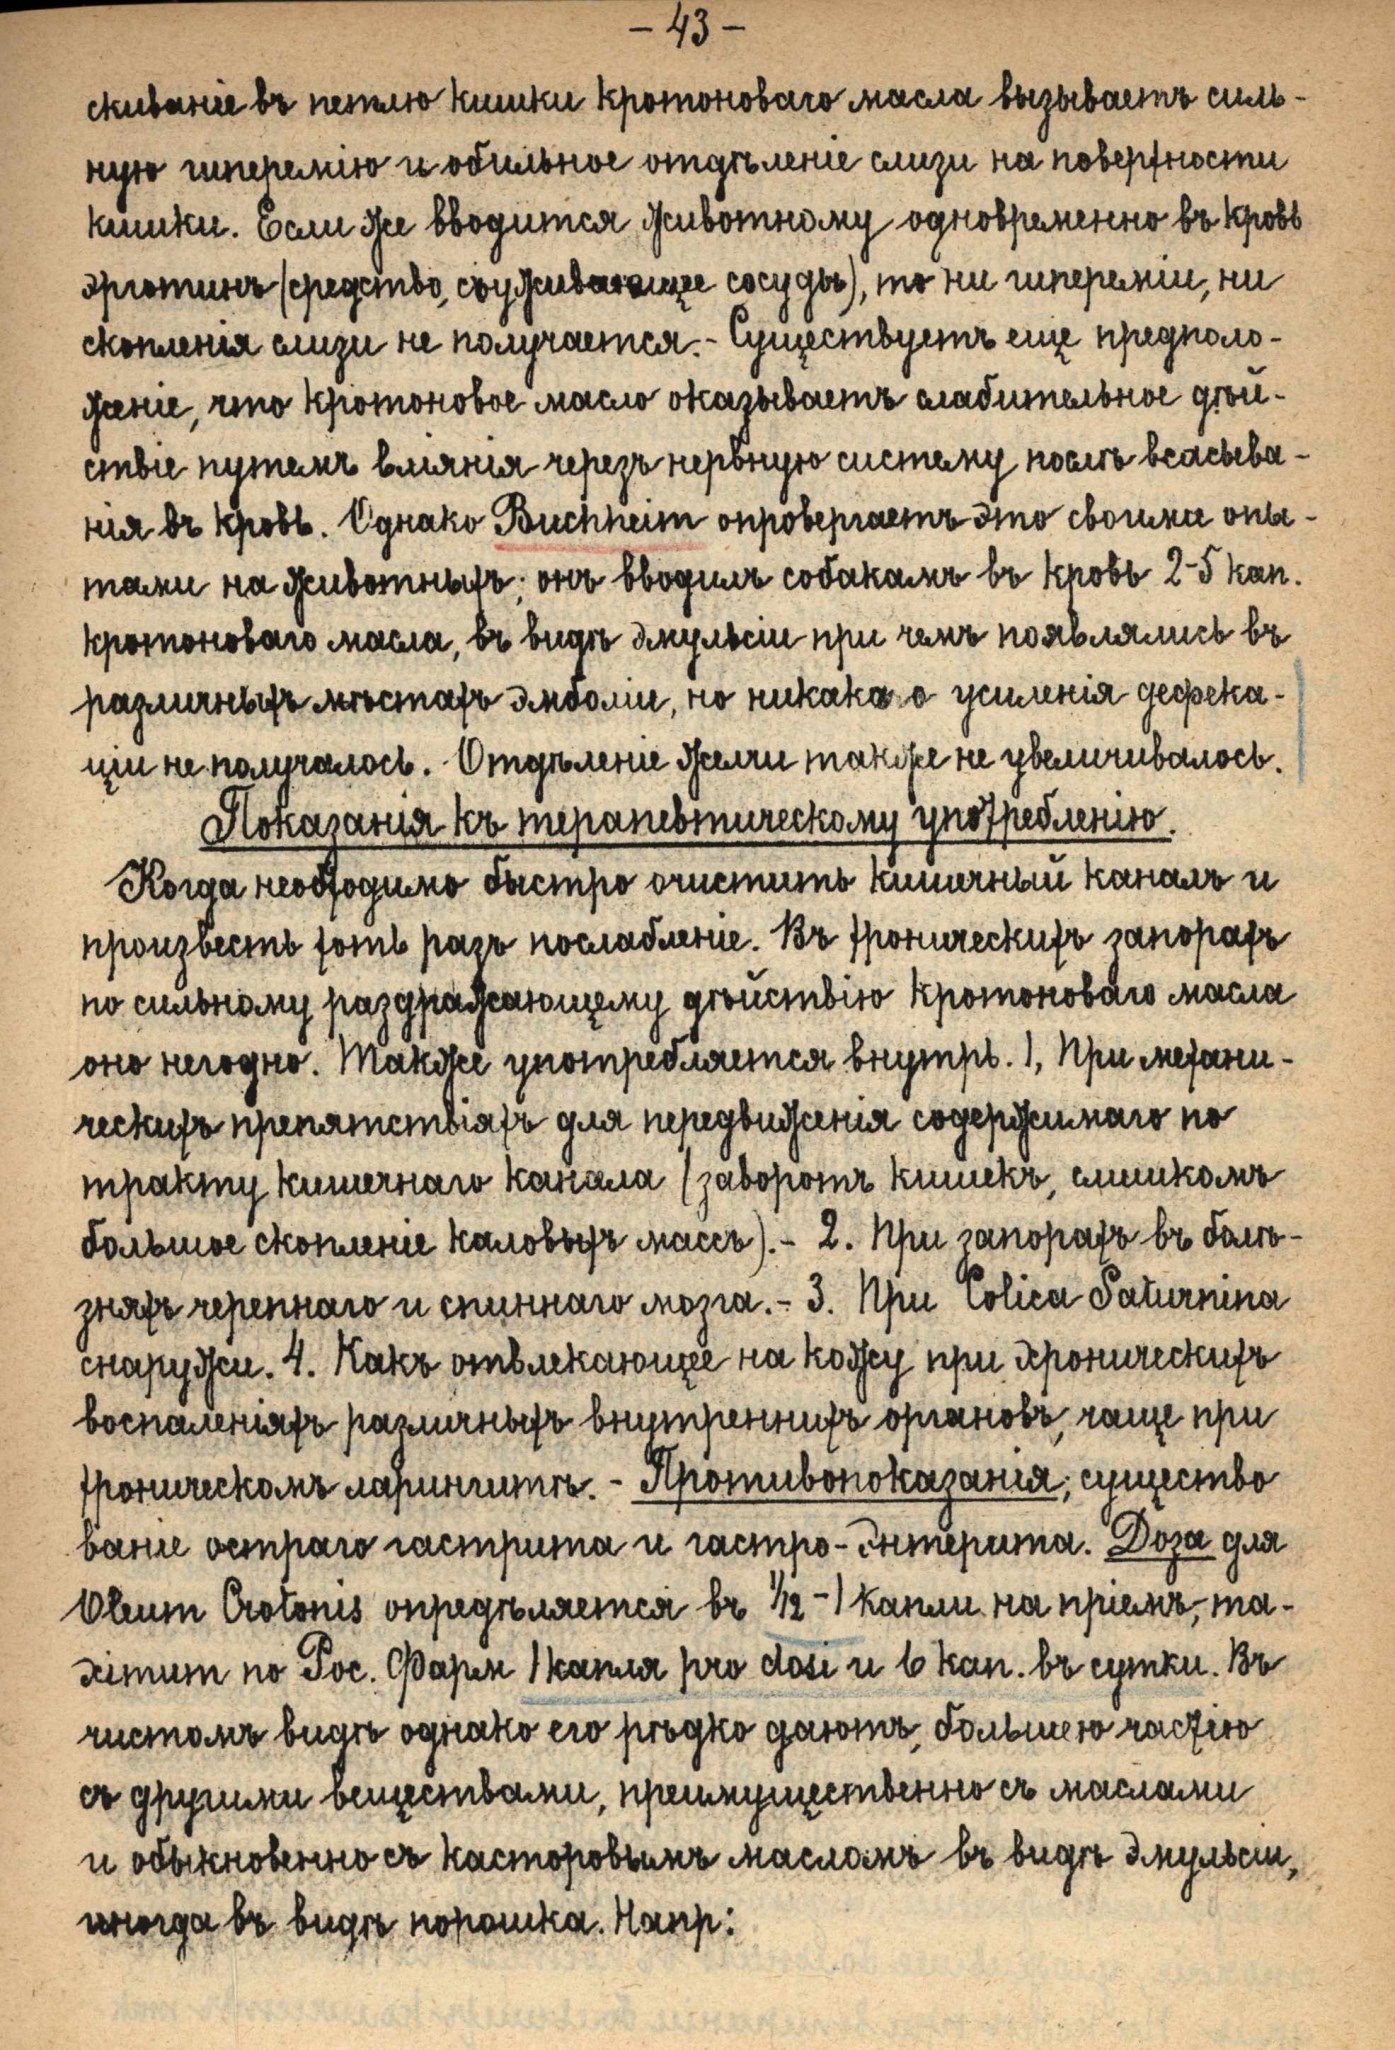 - 43 -
скиваніе въ петлю кишки кротоноваго масла вызываетъ силь-
ную гиперемію и обильное отдѣленіе слизи на поверхности
кишки. Если же вводится животному одновременно въ кровь
эрготинъ (средство, съуживающее сосуды), то ни гипереміи, ни
скопленія слизи не получается.- Существуетъ еще предполо-
женіе, что кротоновое масло оказываетъ слабительное дѣй-
ствіе путемъ вліянія черезъ нервную систему послѣ всасыва-
нія въ кровь. Однако Buchheim опровергаетъ это своими опы-
тами на животныхъ; онъ вводилъ собакамъ въ кровь 2-5 кап.
кротоноваго масла, въ видѣ эмульсіи при чемъ появлялись въ
различныхъ мѣстахъ эмболіи, но никакого усиленія дефека-
ціи не получалось. Отдѣленіе желчи также не увеличивалось.
Показанія къ терапевтическому употребленію.
Когда необходимо быстро очистить кишечный каналъ и
произвесть хоть разъ послабленіе. Въ хроническихъ запорахъ
по сильному раздражающему дѣйствію кротоноваго масла
оно негодно. Также употребляется внутрь. 1, При механи-
ческихъ препятствіяхъ для передвиженія содержимаго по
тракту кишечнаго канала (заворотъ кишекъ, слишкомъ
большое скопленіе каловыхъ массъ).- 2. При запорахъ въ болѣ-
зняхъ черепнаго и спиннаго мозга.- 3. При Colica Saturnina
снаружи. 4. Какъ отвлекающее на кожу при хроническихъ
воспаленіяхъ различныхъ внутреннихъ органовъ, чаще при
хроническомъ ларингитѣ. - Противопоказанія; существо
ваніе остраго гастрита и гастро-энтерита. Доза для
Oleum Crotonis опредѣляется въ 1/12 - 1 капли на пріемъ, ma-
ximum по Рос. Фарм 1 капля pro dosi и 6 кап. въ сутки. Въ
чистомъ видѣ однако его рѣдко даютъ, большею частію
съ другими веществами, преимущественно съ маслами
и обыкновенно съ касторовымъ масломъ въ видѣ эмульсіи,
иногда въ видѣ порошка. Напр: